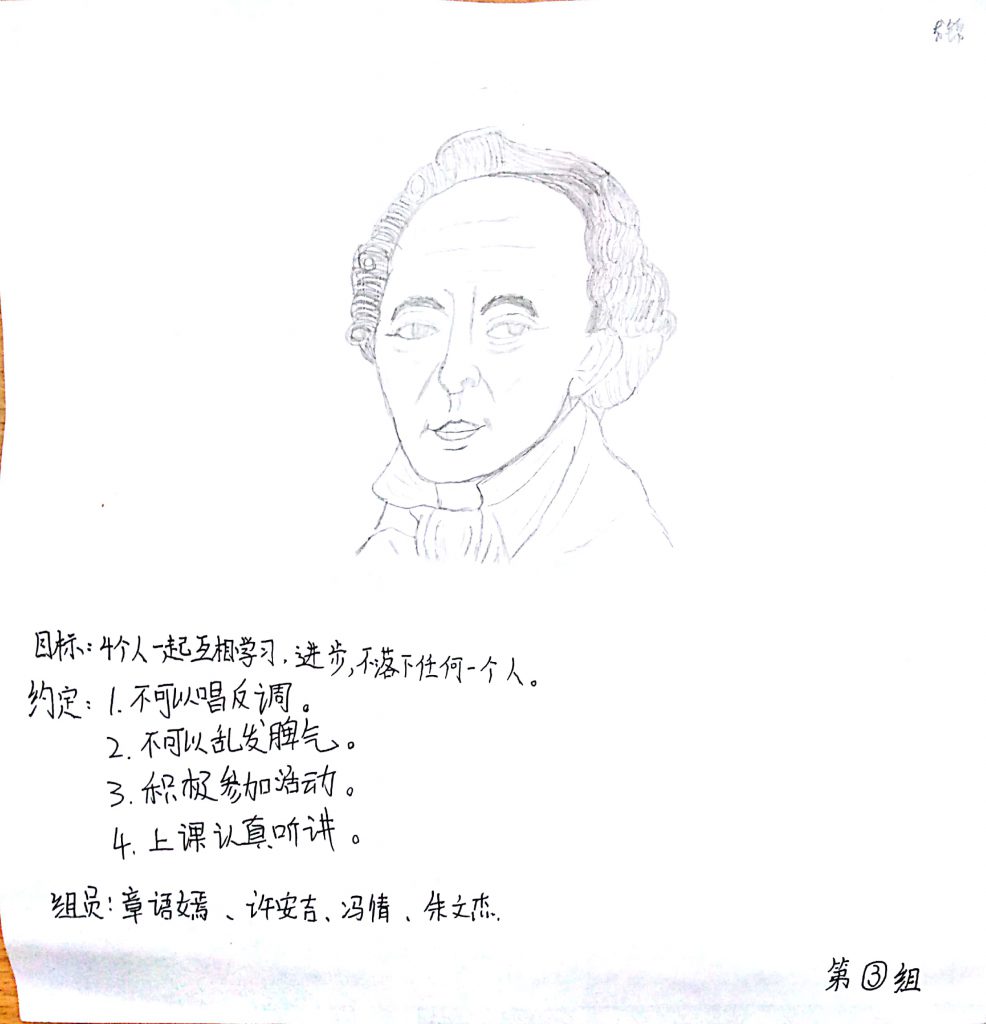 目标：4个人一起互相学习，进步，不落下任何一个人。
约定：1.不可以唱反调。
2.不可以乱发脾气。
3.积极参加活动。
4.上课认真听讲。
组员：章语嫣、许安吉、冯倩、朱文杰.
第③组